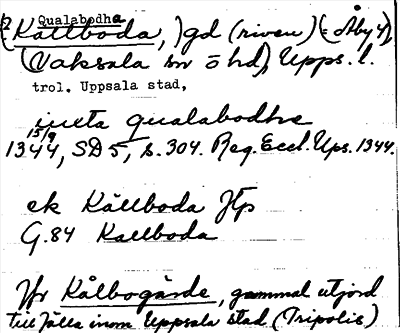 Qualabodha
(Kättboda,) gd (riven) (= Åby 4),
(Vaksala sn ö hd), Upps. l.
trol. Uppsala stad,
iuxta qualabodhe
15/9
1344, SD 5, s. 304. Reg. Eccl. Ups. 1344.
ek Källboda Jfp
G.84 Kallboda
Jfr Kålbogärde, gammal utjord
till Jälla inom Uppsala stad (Tripolis)